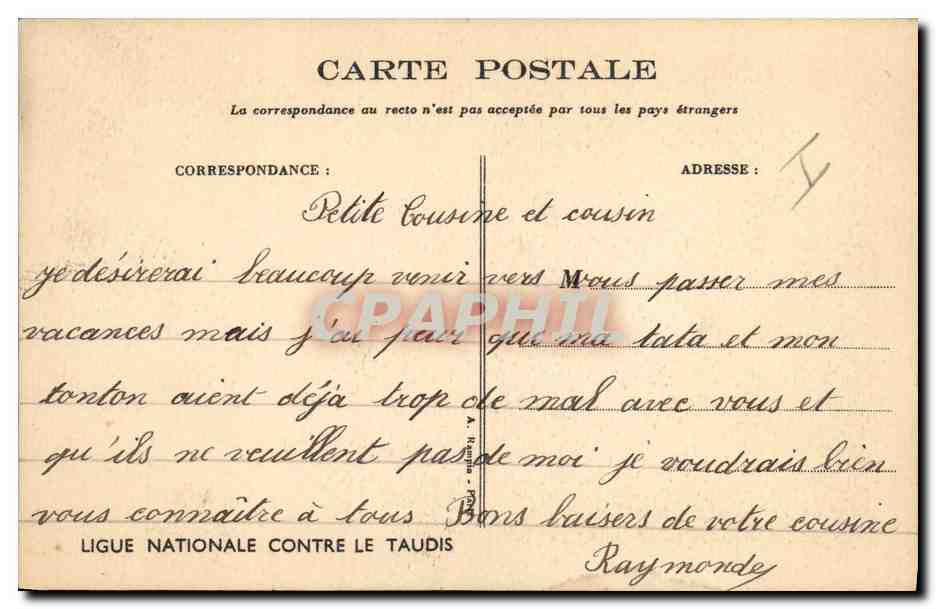 CARTE POSTALE
La correspondance au recto n'est pas acceptée par tous les pays étrangers
CORRESPONDANCE :
ADRESSE :
Petite Cousine et cousin
je désirerai beaucoup venir vers M vous passer mes
vacances mais j'ai peur que ma tata et mon
tonton aient déjà trop de mal avec vous et
qu'ils ne veuillent pas de moi je voudrais bien
vous connaître à tous Bons baisers de votre cousine
Raymonde
LIGUE NATIONALE CONTRE LE TAUDIS
A. Rampin - Paris
CPAPHIL